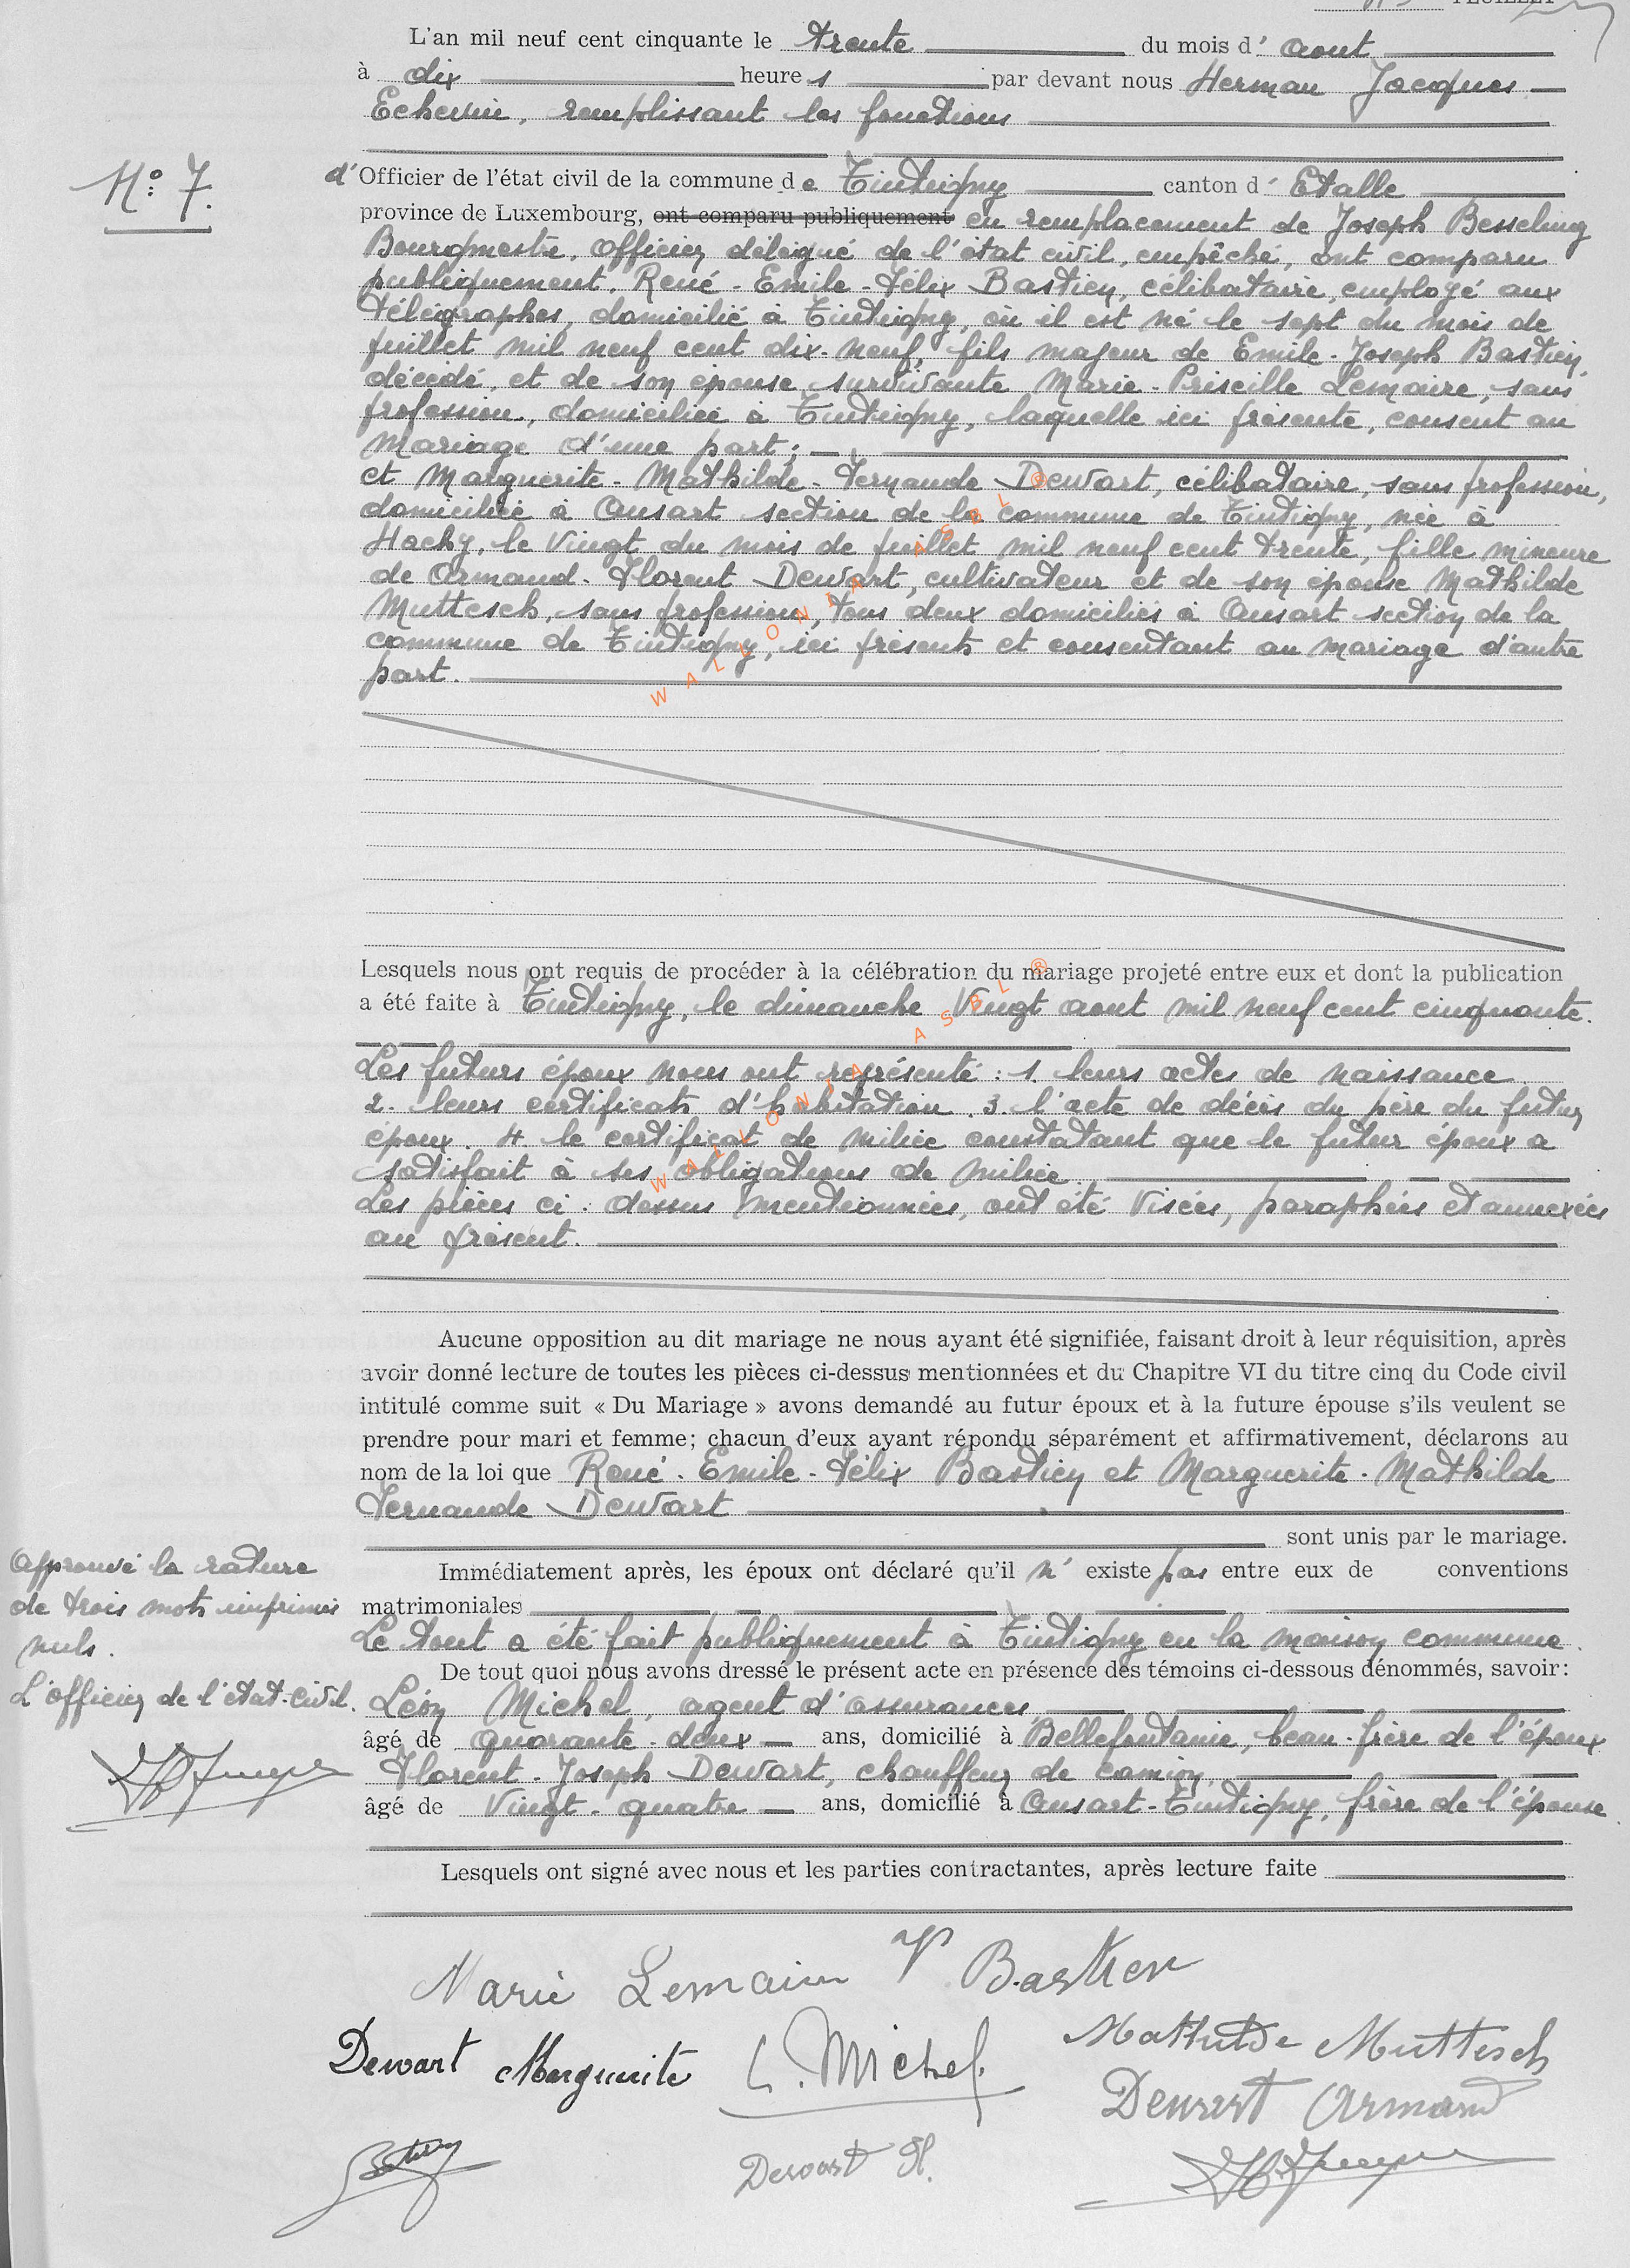 FEUILLET
L'an mil neuf cent cinquante le trente du mois d' aout
à dix heures par devant nous Herman Jacques
Echevin, remplissant les fonctions
N° 7.
d'Officier de l'état civil de la commune de Tintigny canton d' Etalle
province de Luxembourg, ont comparu publiquement en remplacement de Joseph Besseling
Bourgmestre, officier délégué de l'état civil, empêché, ont comparu
publiquement, René-Emile-Félix Bastien, célibataire, employé aux
télégraphes, domicilié à Tintigny, où il est né le sept du mois de
juillet mil neuf cent dix-neuf, fils majeur de Emile-Joseph Bastien,
décédé, et de son épouse survivante Marie-Priscille Lemaire, sans
profession, domiciliée à Tintigny, laquelle ici présente, consent au
mariage d'une part;
et Marguerite-Mathilde-Fernande Dewart, célibataire, sans profession,
domiciliée à Ansart section de la commune de Tintigny, née à
Hachy, le vingt du mois de juillet mil neuf cent trente, fille mineure
de Armand-Florent Dewart, cultivateur et de son épouse Mathilde
Muttesch, sans profession, tous deux domiciliés à Ansart section de la
commune de Tintigny, ici présents et consentant au mariage d'autre
part.
WALLONIA ASBL ®
Lesquels nous ont requis de procéder à la célébration du mariage projeté entre eux et dont la publication
a été faite à Tintigny, le dimanche vingt aout mil neuf cent cinquante.
Les futurs époux nous ont représenté : 1. leurs actes de naissance
2. leurs certificats d'habitation. 3. l'acte de décès du père du futur
époux. 4 le certificat de milice constatant que le futur époux a
satisfait à ses obligations de milice.
Les pièces ci-dessus mentionnées, ont été visées, paraphées et annexées
au présent.
WALLONIA ASBL ®
Aucune opposition au dit mariage ne nous ayant été signifiée, faisant droit à leur réquisition, après
avoir donné lecture de toutes les pièces ci-dessus mentionnées et du Chapitre VI du titre cinq du Code civil
intitulé comme suit « Du Mariage » avons demandé au futur époux et à la future épouse s'ils veulent se
prendre pour mari et femme; chacun d'eux ayant répondu séparément et affirmativement, déclarons au
nom de la loi que René-Emile-Félix Bastien et Marguerite-Mathilde
Fernande Dewart
sont unis par le mariage.
Immédiatement après, les époux ont déclaré qu'il n' existe pas entre eux de conventions
matrimoniales
Le tout a été fait publiquement à Tintigny en la maison commune.
De tout quoi nous avons dressé le présent acte en présence des témoins ci-dessous dénommés, savoir:
Léon Michel, agent d'assurances
âgé de quarante-deux ans, domicilié à Bellefontaine, beau-frère de l'époux
Florent-Joseph Dewart, chauffeur de camion,
âgé de vingt-quatre ans, domicilié à Ansart-Tintigny, frère de l'épouse
Lesquels ont signé avec nous et les parties contractantes, après lecture faite
Approuvé la rature
de trois mots imprimés
nuls.
L'officier de l'état-civil.
Marie Lemaire V Bastien
Dewart Marguerite L. Michel. Mathilde Muttesch
Dewart Armand
Dewart Fl.